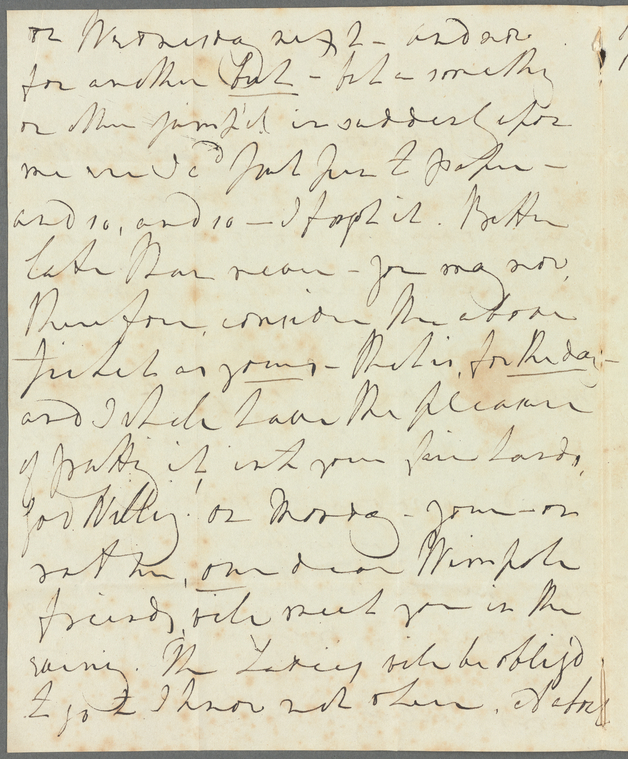 on Wednesday next - and now
for another but - but a something
or other jump'd in suddenly before
me ere I cd put pen to paper -
and so, and so - I forgot it. Better
late than never - you may now,
therefore, consider the above
ticket as yours - that is, for the day -
and I shall have the pleasure
of putting it, into your fair hands,
God Willing! on Monday - your - or
rather, our dear Wimpole
friends, will meet you in the
evening. The Ladies will be oblig'd
to go to I know not where,